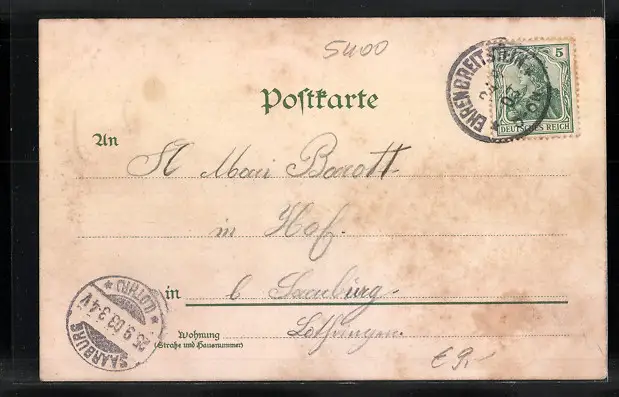 5400
EHRENBREITSTEIN
5
DEUTSCHES REICH
Postkarte
An
Mari Barott
in Hof
in b Saarburg
Lothringen.
Wohnung
(Straße und Hausnummer)
SAARBURG
(LOTHR)
9 03 3-4 V
€ 9,-